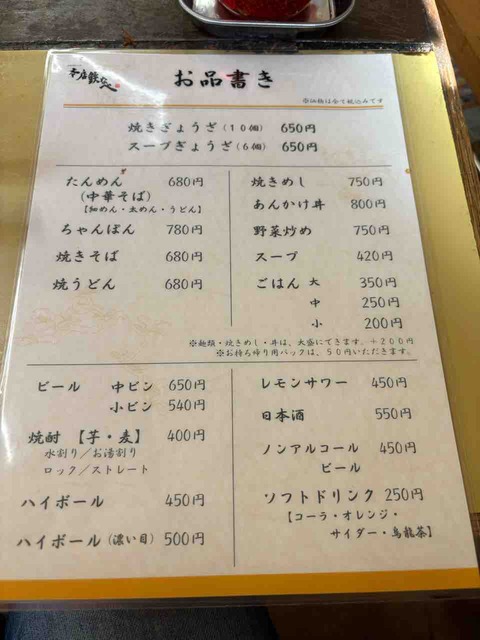 本店鉄なべ
お品書き
※価格は全て税込みです
焼きぎょうざ(10個) 650円
スープぎょうざ(6個) 650円
たんめん 680円
(中華そば)
【細めん・太めん・うどん】
ちゃんぽん 780円
焼きそば 680円
焼うどん 680円
焼きめし 750円
あんかけ丼 800円
野菜炒め 750円
スープ 420円
ごはん 大 350円
中 250円
小 200円
※麺類・焼きめし・丼は、大盛にできます。+200円
※お持ち帰り用パックは、50円いただきます。
ビール 中ビン 650円
小ビン 540円
焼酎 【芋・麦】 400円
水割り/お湯割り
ロック/ストレート
ハイボール 450円
ハイボール(濃い目) 500円
レモンサワー 450円
日本酒 550円
ノンアルコール 450円
ビール
ソフトドリンク 250円
【コーラ・オレンジ・
サイダー・烏龍茶】